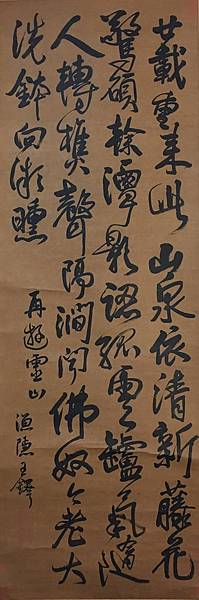 廿載重来此山泉依清新藤花
驚碩餘潭影認孤雲鑪氣隨
人轉樵聲隔澗聞佛奴今老大
洗鉢向微曛
再遊靈山 漁隱王鐸